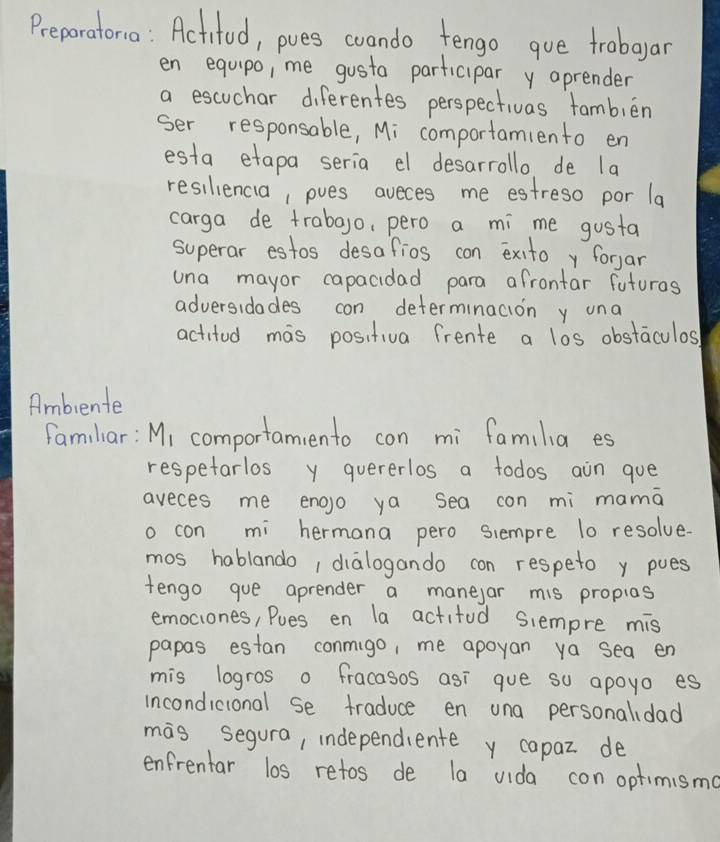 Preparatoria: Actitud, pues cuando tengo que trabajar
en equipo, me gusta participar y aprender
a escuchar diferentes perspectivas también
ser responsable, Mi comportamiento en
esta etapa sería el desarrollo de la
resiliencia, pues aveces me estreso por la
carga de trabajo, pero a mí me gusta
superar estos desafíos con éxito y forjar
una mayor capacidad para afrontar futuras
adversidades con determinación y una
actitud más positiva frente a los obstáculos
Ambiente
familiar: Mi comportamiento con mi familia es
respetarlos y quererlos a todos aún que
aveces me enojo ya sea con mi mamá
o con mi hermana pero siempre lo resolve-
mos hablando, diálogando con respeto y pues
tengo que aprender a manejar mis propias
emociones, Pues en la actitud siempre mís
papas estan conmigo, me apoyan ya sea en
mis logros o fracasos así que su apoyo es
incondicional se traduce en una personalidad
más segura, independiente y capaz de
enfrentar los retos de la vida con optimismo